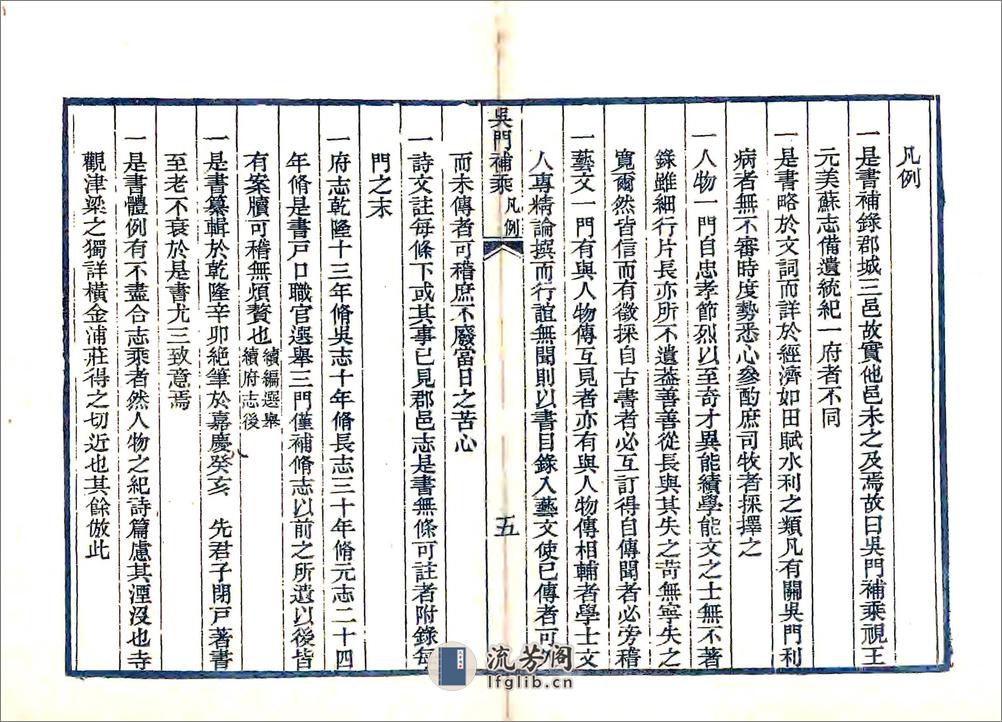 凡例
一是書補錄郡城三邑故實他邑未之及焉故曰吳門補乘視王
元美蘇志備遺統紀一府者不同
一是書略於文詞而詳於經濟如田賦水利之類凡有關吳門利
病者無不審時度勢悉心參酌庶司牧者採擇之
一人物一門自忠孝節烈以至奇才異能績學能文之士無不著
錄雖細行片長亦所不遺葢善善從長與其失之苛無寧失之
寬爾然皆信而有徵採自古書者必互訂得自傳聞者必旁稽
一藝文一門有與人物傳互見者亦有與人物傳相輔者學士文
人專精論撰而行誼無聞則以書目錄入藝文使已傳者可久
吳門補乘
凡例
五
而未傳者可稽庶不廢當日之苦心
一詩文註每條下或其事已見郡邑志是書無條可註者附錄每
門之末
一府志乾隆十三年脩吳志十年脩長志三十年脩元志二十四
年脩是書戸口職官選舉三門僅補脩志以前之所遺以後皆
有案牘可稽無煩贅也
續編選舉
續府志後
一是書纂輯於乾隆辛卯絕筆於嘉慶癸亥 先君子閉戸著書
至老不衰於是書尤三致意焉
一是書體例有不盡合志乘者然人物之紀詩篇慮其湮沒也寺
觀津梁之獨詳橫金浦莊得之切近也其餘倣此
流芳阁
lfglib.cn